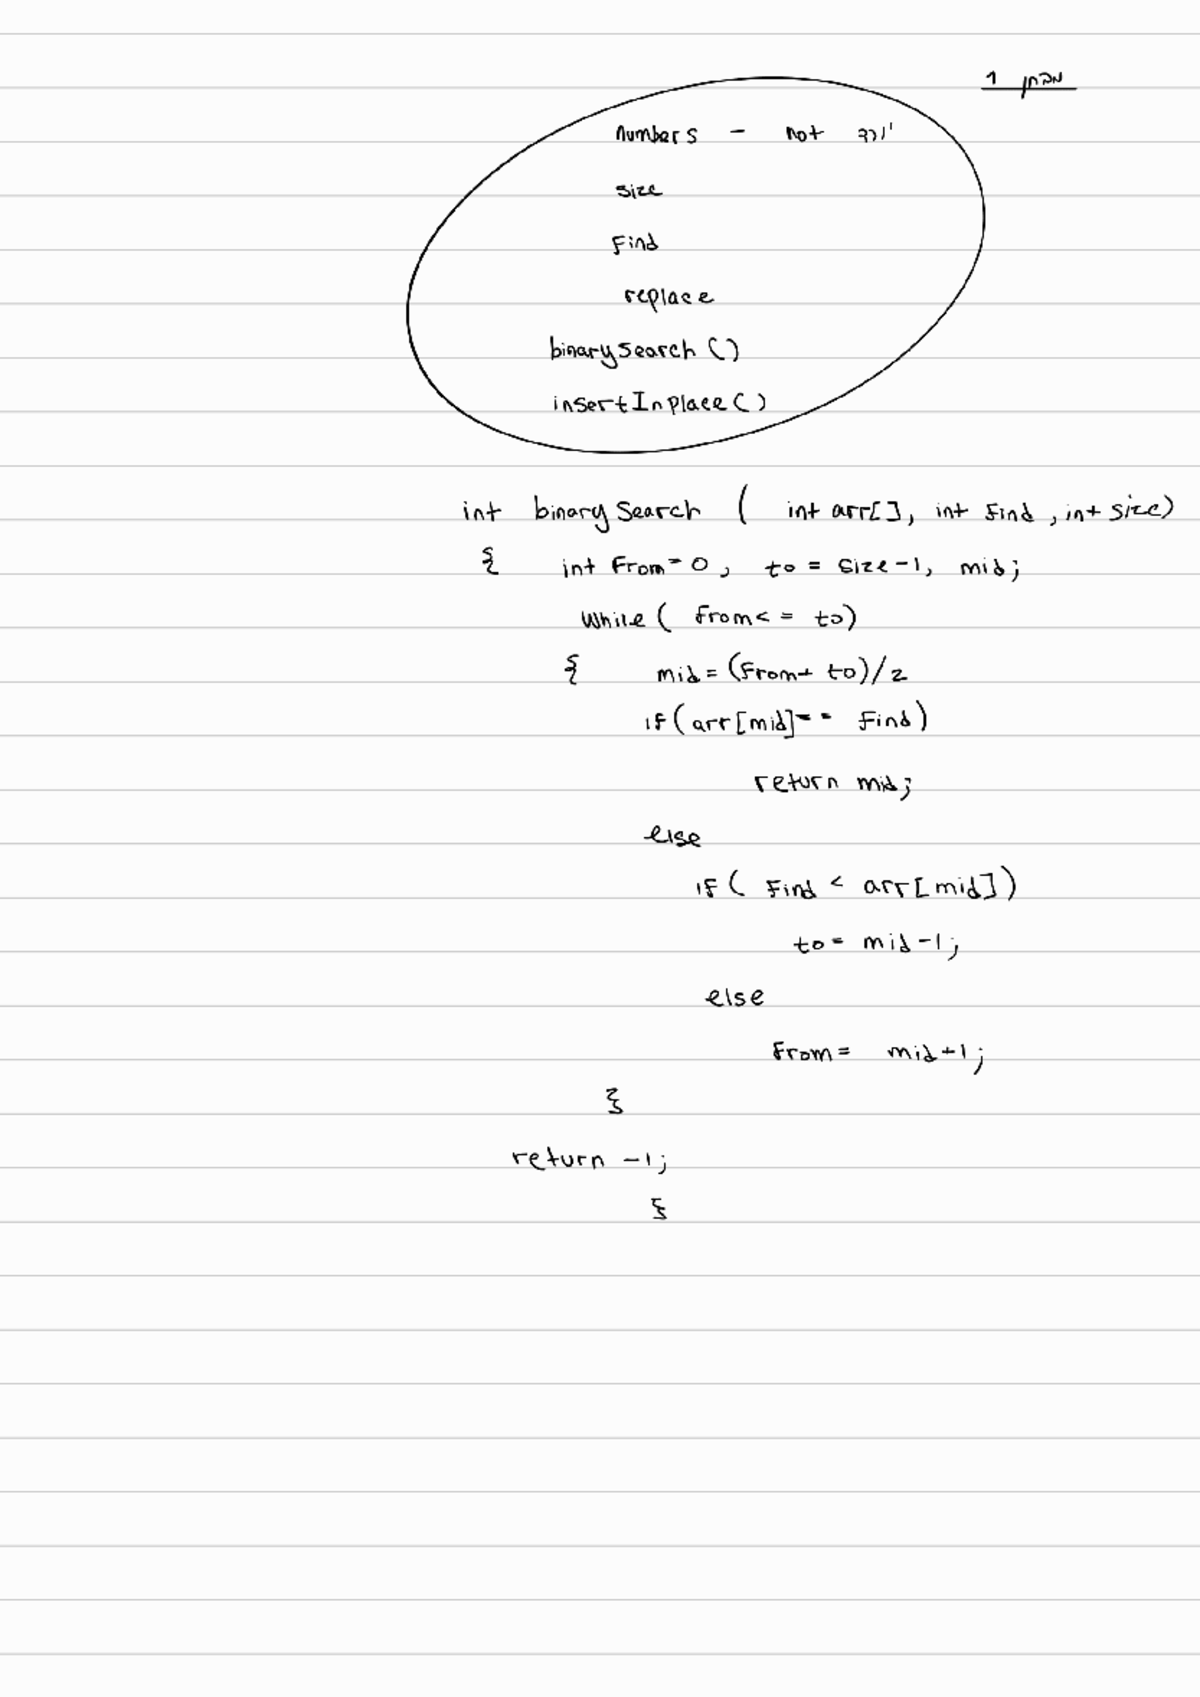 מבחן 1
numbers - not יורד
size
find
replace
binarySearch ()
insertInplace ()
int binary Search ( int arr[], int find , int size)
{ int from=0, to = size-1, mid;
while ( from<= to)
{ mid = (from+ to)/2
if(arr[mid]== find)
return mid;
else
if( find < arr[mid])
to= mid-1;
else
from= mid+1;
}
return -1;
}